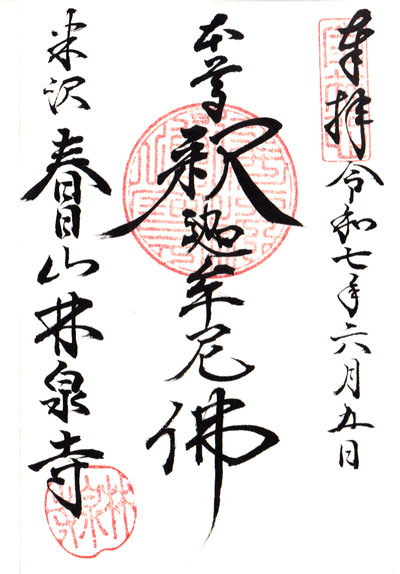 奉拝 令和七年六月五日
本尊 釈迦牟尼佛
米沢 春日山林泉寺
林泉寺